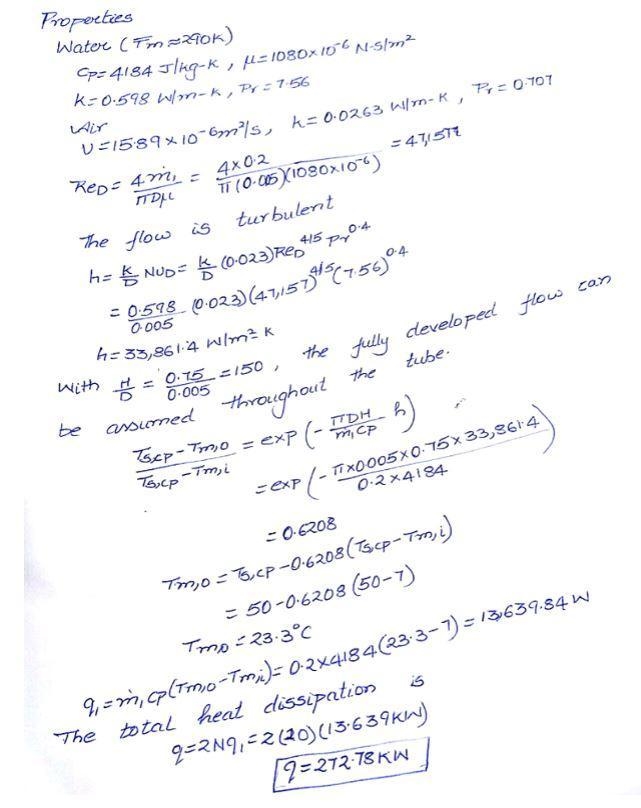 Properties
Water (Tm≈290K)
Cp=4184 J/kg-K, μ=1080×10⁻⁶ N·s/m²
K=0.598 W/m-K, Pr=7.56
Air
υ=15.89×10⁻⁶m²/s, k=0.0263 W/m-K, Pr=0.707
ReD = 4ṁ₁/πDμ = 4×0.2/π(0.005)(1080×10⁻⁶) = 47,157
The flow is turbulent
h = K/D NUD = K/D (0.023)ReD^4/5 Pr^0.4
= 0.598/0.005 (0.023)(47,157)^4/5 (7.56)^0.4
h=33,861.4 W/m² K
With H/D = 0.75/0.005 = 150, the fully developed flow can
be assumed throughout the tube.
Ts,cp-Tm,o/Ts,cp-Tm,i = exp(-πDH/ṁ₁CP h)
= exp(-π×0.005×0.75×33,861.4/0.2×4184)
= 0.6208
Tm,o = Ts,cp-0.6208(Ts,cp-Tm,i)
= 50-0.6208(50-7)
Tm,o = 23.3°C
q₁=ṁ₁cp(Tm,o-Tm,i)=0.2×4184(23.3-7)=13,639.84W
The total heat dissipation is
q=2Nq₁=2(20)(13.639KW)
q=272.78KW